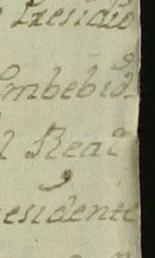 Presidio
Embebid
l Real
esidente